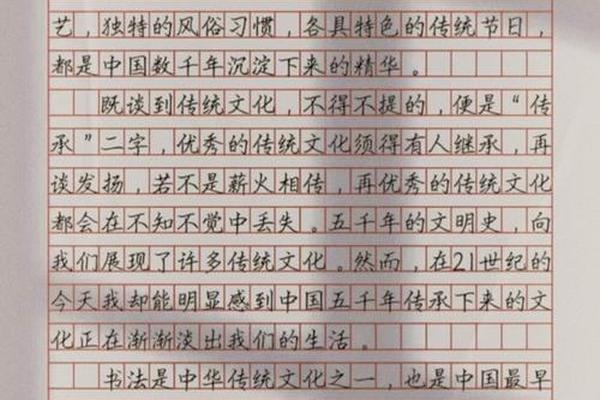 艺，独特的风俗习惯，各具特色的传统节日，
都是中国数千年沉淀下来的精华。
既谈到传统文化，不得不提的，便是“传
承”二字，优秀的传统文化须得有人继承，再
谈发扬，若不是薪火相传，再优秀的传统文化
都会在不知不觉中丢失。五千年的文明史，向
我们展现了许多传统文化。然而，在21世纪的
今天我却能明显感到中国五千年传承下来的文
化正在渐渐淡出我们的生活。
书法是中华传统文化之一，也是中国最早